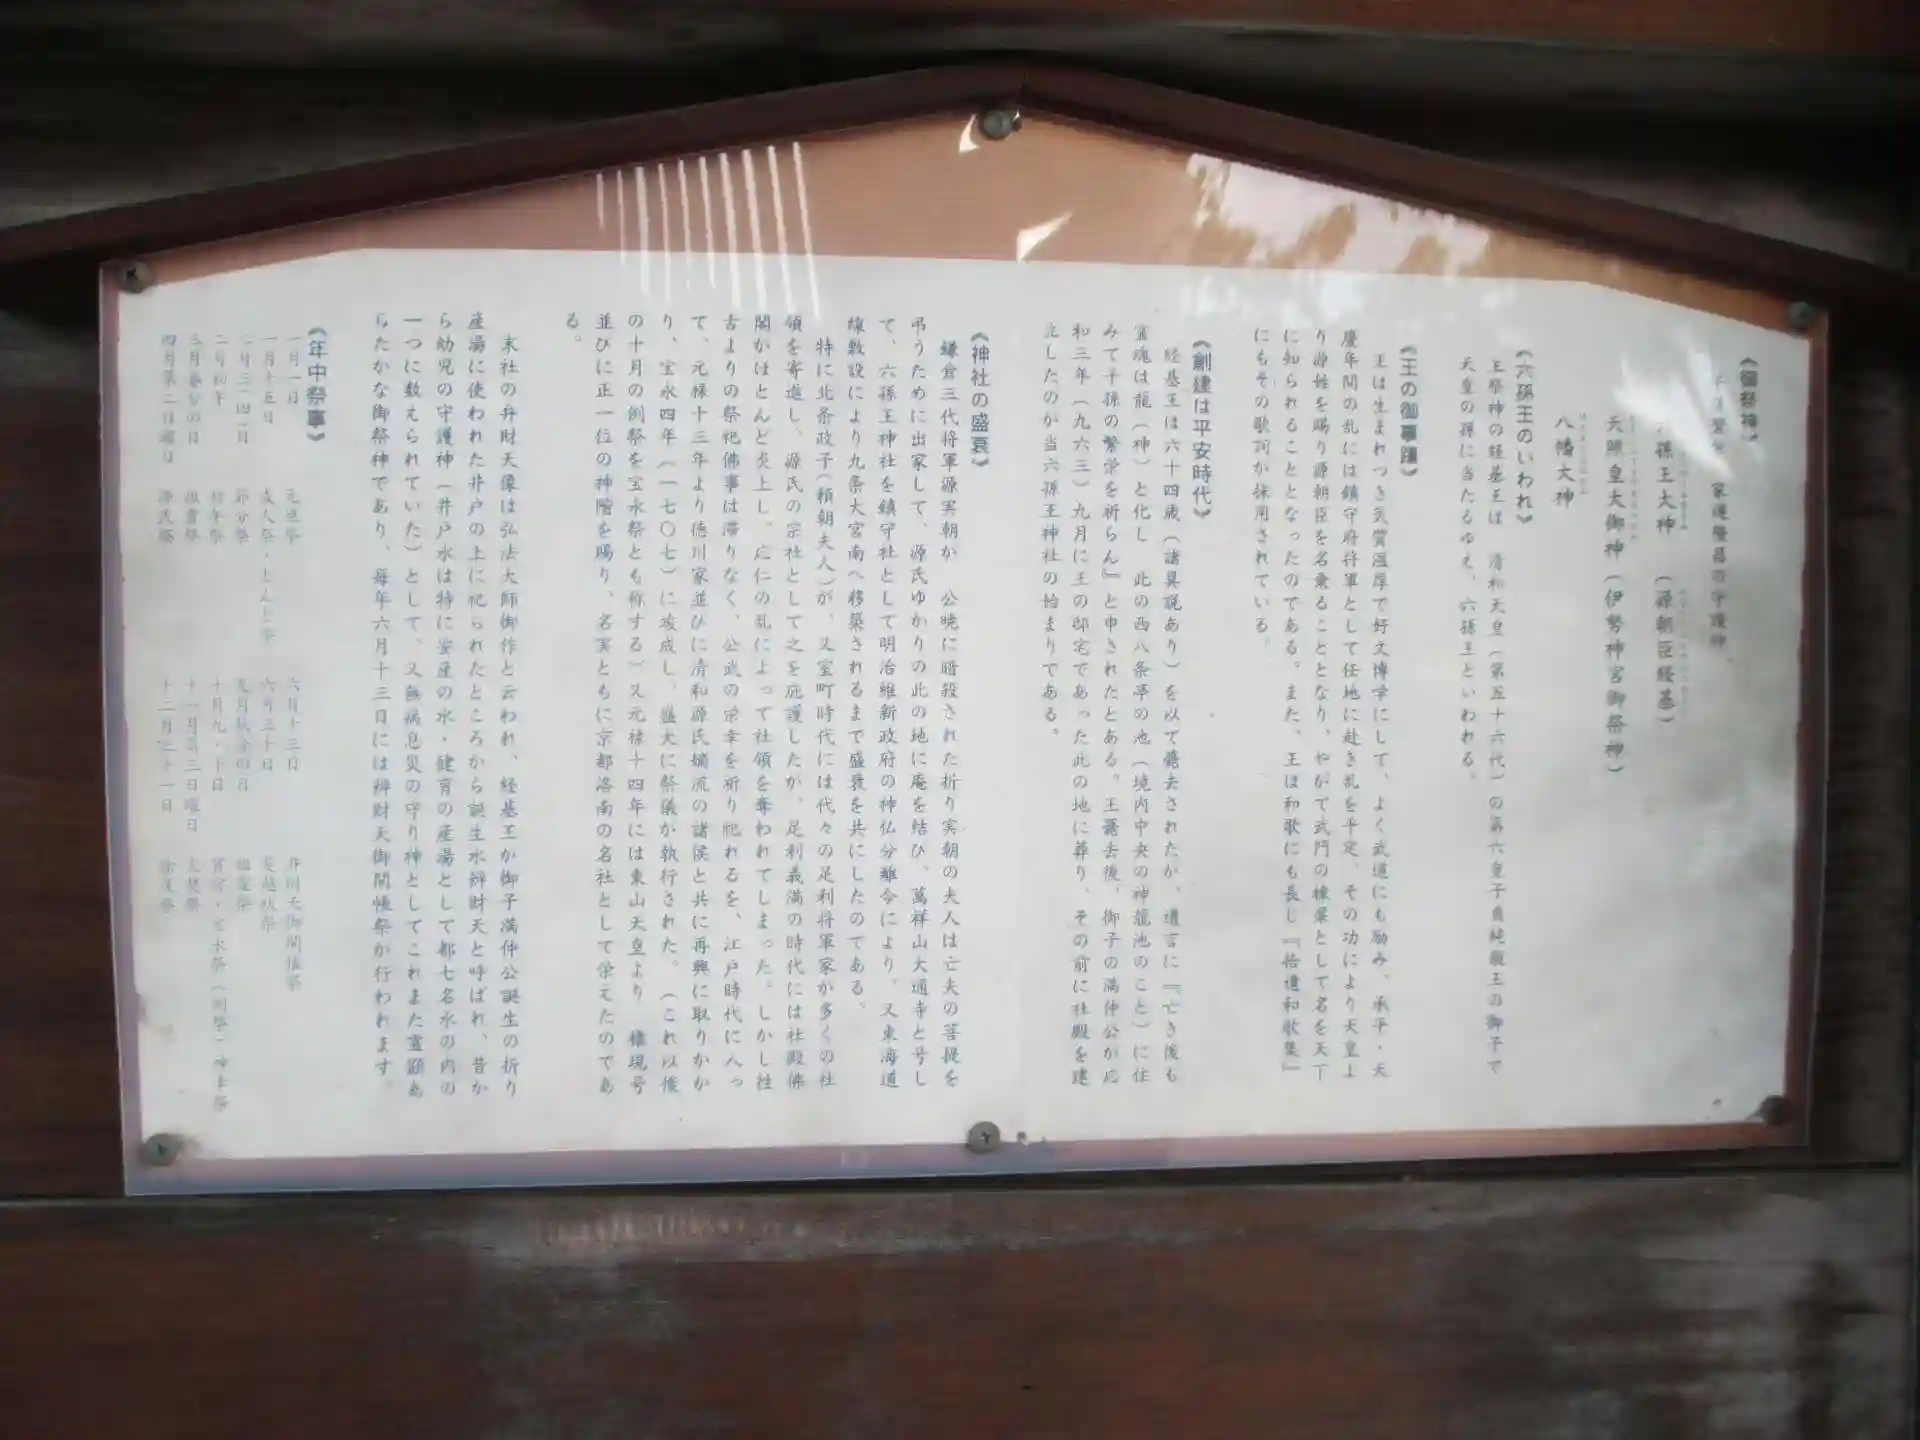 《御祭神》
家運隆昌の守護神
六孫王大神 (源朝臣経基)
天照皇大御神 (伊勢神宮御祭神)
八幡大神
《六孫王のいわれ》
主祭神の経基王は 清和天皇(第五十六代)の第六皇子貞純親王の御子で
天皇の孫に当たるゆえ、六孫王といわれる。
《王の御事蹟》
王は生まれつき気質温厚で好文博学にして、よく武道にも励み、承平・天
慶年間の乱には鎮守府将軍として任地に赴き乱を平定、その功により天皇よ
り源姓を賜り源朝臣を名乗ることとなり、やがて武門の棟梁として名を天下
に知られることとなったのである。また、王は和歌にも長じ『拾遺和歌集』
にもその歌詞が採用されている。
《創建は平安時代》
経基王は六十四歳(諸異説あり)を以て薨去されたが、遺言に『亡き後も
霊魂は龍(神)と化し 此の西八条亭の池(境内中央の神龍池のこと)に住
みて子孫の繁栄を祈らん』と申されたとある。王薨去後、御子の満仲公が応
和三年(九六三)九月に王の邸宅であった此の地に葬り、その前に社殿を建
立したのが当六孫王神社の始まりである。
《神社の盛衰》
鎌倉三代将軍源実朝が 公暁に暗殺された折り実朝の夫人は亡夫の菩提を
弔うために出家して、源氏ゆかりの此の地に庵を結び、萬祥山大通寺と号し
て、六孫王神社を鎮守社として明治維新政府の神仏分離令により、又東海道
線敷設により九条大宮南へ移築されるまで盛衰を共にしたのである。
特に北条政子(頼朝夫人)が、又室町時代には代々の足利将軍家が多くの社
領を寄進し、源氏の宗社として之を庇護したが、足利義満の時代には社殿佛
閣がほとんど炎上し、応仁の乱によって社領を奪われてしまった。しかし往
古よりの祭祀佛事は滞りなく、公武の栄幸を祈り祀れるを、江戸時代に入っ
て、元禄十三年より徳川家並びに清和源氏嫡流の諸侯と共に再興に取りかか
り、宝永四年(一七〇七)に竣成し、盛大に祭儀が執行された。(これ以後
の十月の例祭を宝永祭とも称する)又元禄十四年には東山天皇より 権現号
並びに正一位の神階を賜り、名実ともに京都洛南の名社として栄えたのであ
る。
末社の弁財天像は弘法大師御作と云われ、経基王が御子満仲公誕生の折り
産湯に使われた井戸の上に祀られたところから誕生水辨財天と呼ばれ、昔か
ら幼児の守護神(井戸水は特に安産の水・健育の産湯として都七名水の内の
一つに数えられていた)として、又無病息災の守り神としてこれまた霊顕あ
らたかな御祭神であり、毎年六月十三日には辨財天御開帳祭が行われます。
《年中祭事》
一月一日 元旦祭 六月十三日 弁財天御開帳祭
一月十五日 成人祭・とんど祭 六月三十日 夏越祓祭
二月三・四日 節分祭 九月秋分の日 祖霊祭
二月初午 初午祭 十月九・十日 宵宮・宝永祭(例祭)神幸祭
三月春分の日 祖霊祭 十一月第三日曜日 火焚祭
四月第二日曜日 源氏祭 十二月三十一日 除夜祭